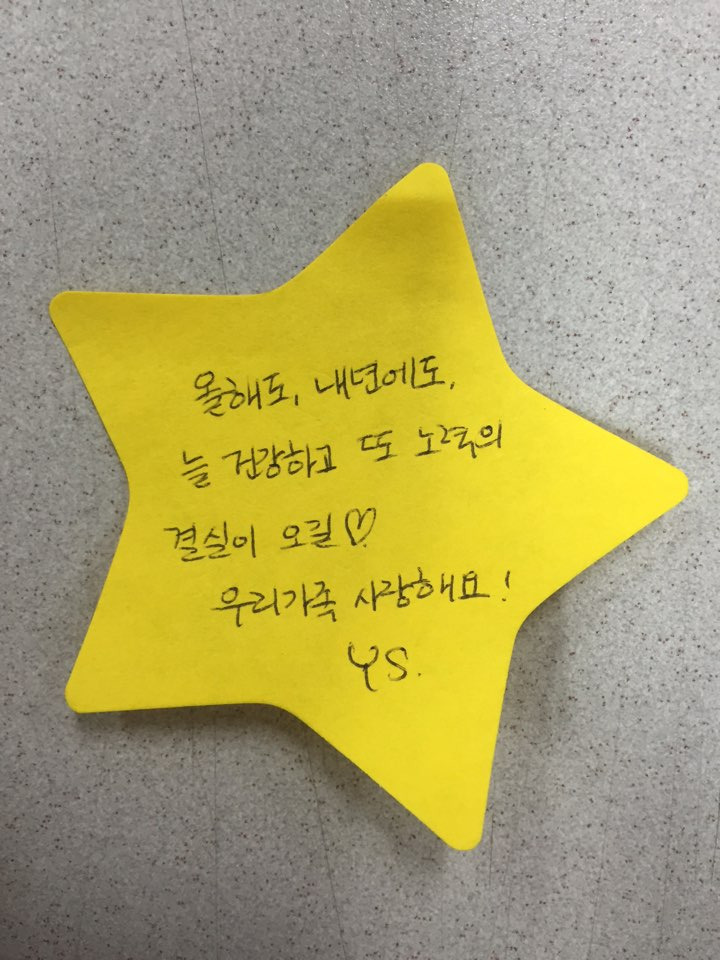 올해도, 내년에도,
늘 건강하고 또 노력의
결실이 오길♡
우리가족 사랑해요!
YS.